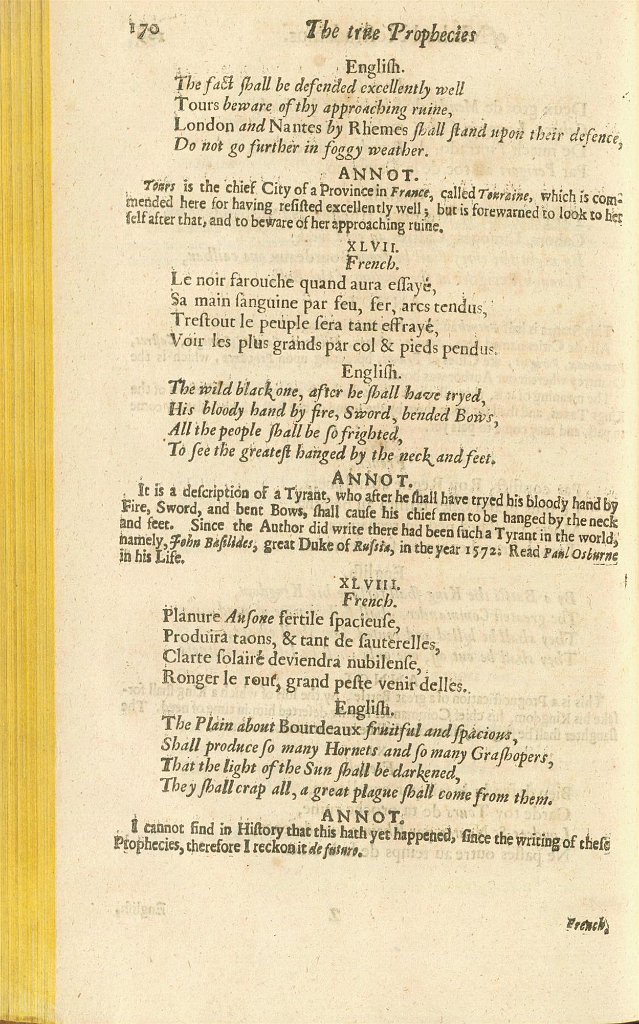 170 The true Prophecies
Engliſh.
The fact ſhall be defended excellently well
Tours beware of thy approaching ruine,
London and Nantes by Rhemes ſhall ſtand upon their defence,
Do not go further in foggy weather.
ANNOT.
Tours is the chief City of a Province in France, called Touraine, which is com-
mended here for having reſiſted excellently well; but is forewarned to look to her
ſelf after that, and to beware of her approaching ruine.
XLVII.
French.
Le noir farouche quand aura eſſayé,
Sa main ſanguine par feu, fer, arcs tendus,
Treſtout le peuple ſera tant effrayé,
Voir les plus grands par col & pieds pendus.
Engliſh.
The wild black one, after he ſhall have tryed,
His bloody hand by fire, Sword, bended Bows,
All the people ſhall be ſo frighted,
To ſee the greateſt hanged by the neck and feet.
ANNOT.
It is a deſcription of a Tyrant, who after he ſhall have tryed his bloody hand by
Fire, Sword, and bent Bows, ſhall cauſe his chief men to be hanged by the neck
and feet. Since the Author did write there had been ſuch a Tyrant in the world,
namely, John Baſilides, great Duke of Ruſſia, in the year 1572. Read Paul Osburne
in his Life.
XLVIII.
French.
Planure Auſone fertile ſpacieuſe,
Produira taons, & tant de ſauterelles,
Clarte ſolairé deviendra nubilenſe,
Ronger le rout, grand peſte venir delles.
Engliſh.
The Plain about Bourdeaux fruitful and ſpacious,
Shall produce ſo many Hornets and ſo many Graſhopers,
That the light of the Sun ſhall be darkened,
They ſhall crap all, a great plague ſhall come from them.
ANNOT.
I cannot find in Hiſtory that this hath yet happened, ſince the writing of theſe
Prophecies, therefore I reckon it de futuro.
French,